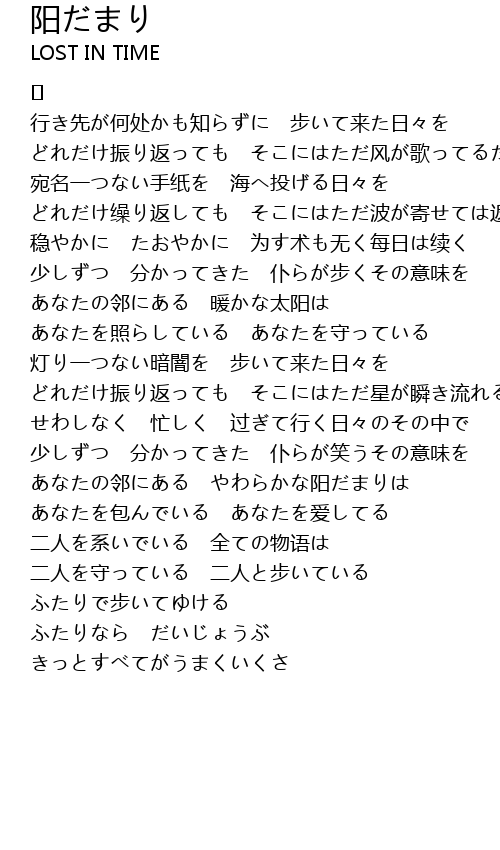 阳だまり
LOST IN TIME
行き先が何处かも知らずに　歩いて来た日々を
どれだけ振り返っても　そこにはただ风が歌ってるた
宛名一つない手纸を　海へ投げる日々を
どれだけ缲り返しても　そこにはただ波が寄せては返
稳やかに　たおやかに　为す术も无く毎日は续く
少しずつ　分かってきた　仆らが歩くその意味を
あなたの邻にある　暖かな太阳は
あなたを照らしている　あなたを守っている
灯り一つない暗闇を　歩いて来た日々を
どれだけ振り返っても　そこにはただ星が瞬き流れる
せわしなく　忙しく　过ぎて行く日々のその中で
少しずつ　分かってきた　仆らが笑うその意味を
あなたの邻にある　やわらかな阳だまりは
あなたを包んでいる　あなたを爱してる
二人を系いでいる　全ての物语は
二人を守っている　二人と歩いている
ふたりで歩いてゆける
ふたりなら　だいじょうぶ
きっとすべてがうまくいくさ